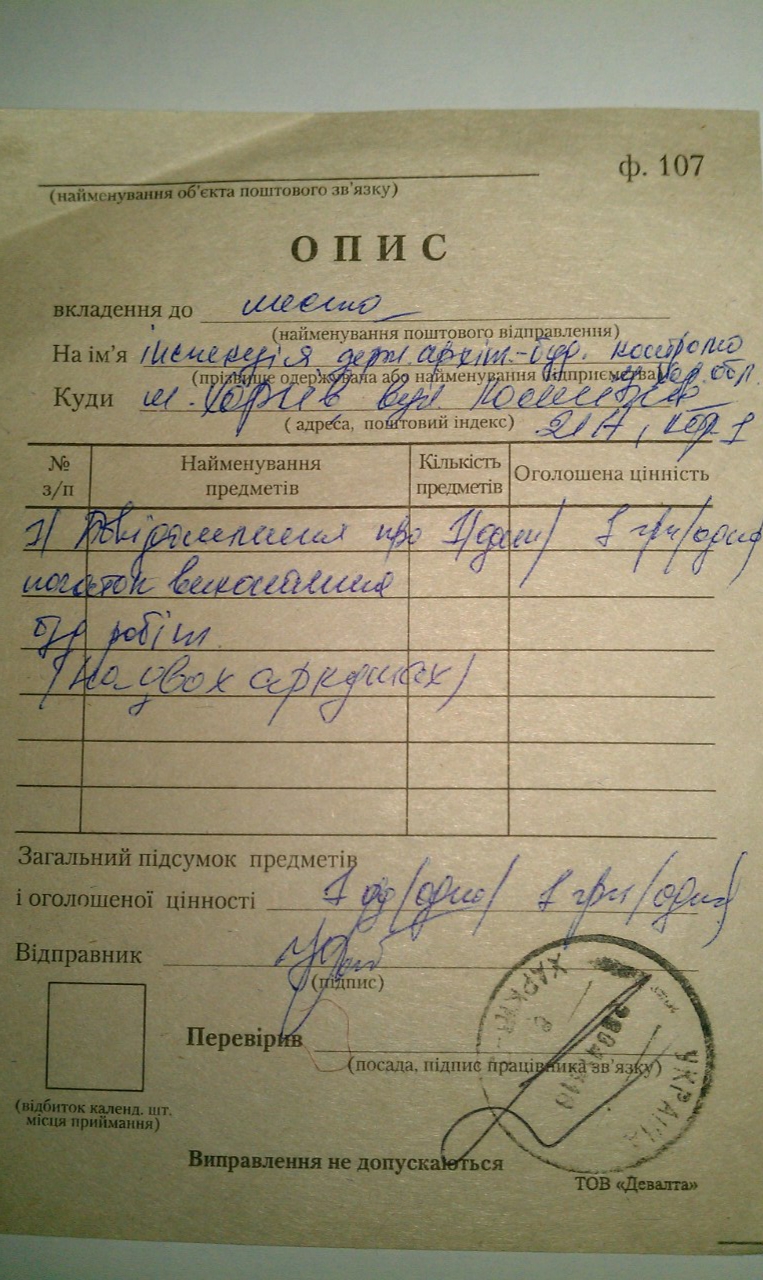 ф. 107
(найменування об'єкта поштового зв'язку)
ОПИС
вкладення до
(найменування поштового відправлення)
На ім'я інспекція держ. архіт.-буд. контролю
(прізвище одержувача або найменування підприємства) обл.
Куди м. Харків вул.
(адреса, поштовий індекс) 21А,
№ з/п Найменування предметів Кількість предметів Оголошена цінність
1/ Повідомлення про 1/один/ 1 грн/одна
початок виконання
буд робіт
(на двох аркушах)
Загальний підсумок предметів
і оголошеної цінності 1 /один/ 1 грн/одна/
Відправник
(підпис)
Перевірив
(посада, підпис працівника зв'язку)
(відбиток календ. шт.
місця приймання)
ХАРКІВ
УКРАЇНА
Виправлення не допускаються
ТОВ «Девалта»